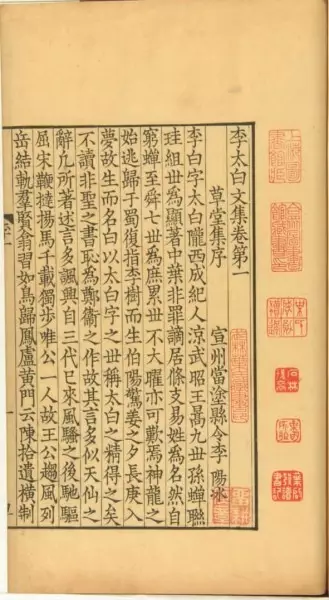 李太白文集卷第一
草堂集序
宣州當塗縣令李陽冰
李白字太白隴西成紀人涼武昭王暠九世孫蟬聯
珪組世為顯著中葉非罪謫居條支易姓為名然自
窮蟬至舜七世為庶累世不大曜亦可歎焉神龍之
始逃歸于蜀復指李樹而生伯陽驚姜之夕長庚入
夢故生而名白以太白字之世稱太白之精得之矣
不讀非聖之書恥為鄭衞之作故其言多似天仙之
辭凡所著述言多諷興自三代已來風騷之後馳驅
屈宋鞭撻揚馬千載獨步唯公一人故王公趨風列
岳結軌羣賢翕習如鳥歸鳳盧黃門云陳拾遺橫制